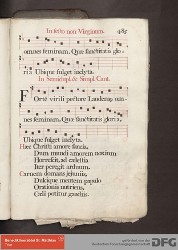 In festo non Virginum. 485
omnes feminum, Quæ sanctitatis glo-
ria Ubique fulget inclyta.
In Semidupl. & Simpl. Cant.
Forté virili pectore Laudemus om-
nes feminum, Quæ sanctitatis gloria,
Ubique fulget inclyta.
Hæc Christi amore saucia,
Dum mundi amorem noxium
Horrescit, ad cælestia
Iter peregit arduum.
Carnem domans jejuniis,
Dulcique mentem pabulo
Orationis nutriens,
Cæli potitur gaudiis.
DFG